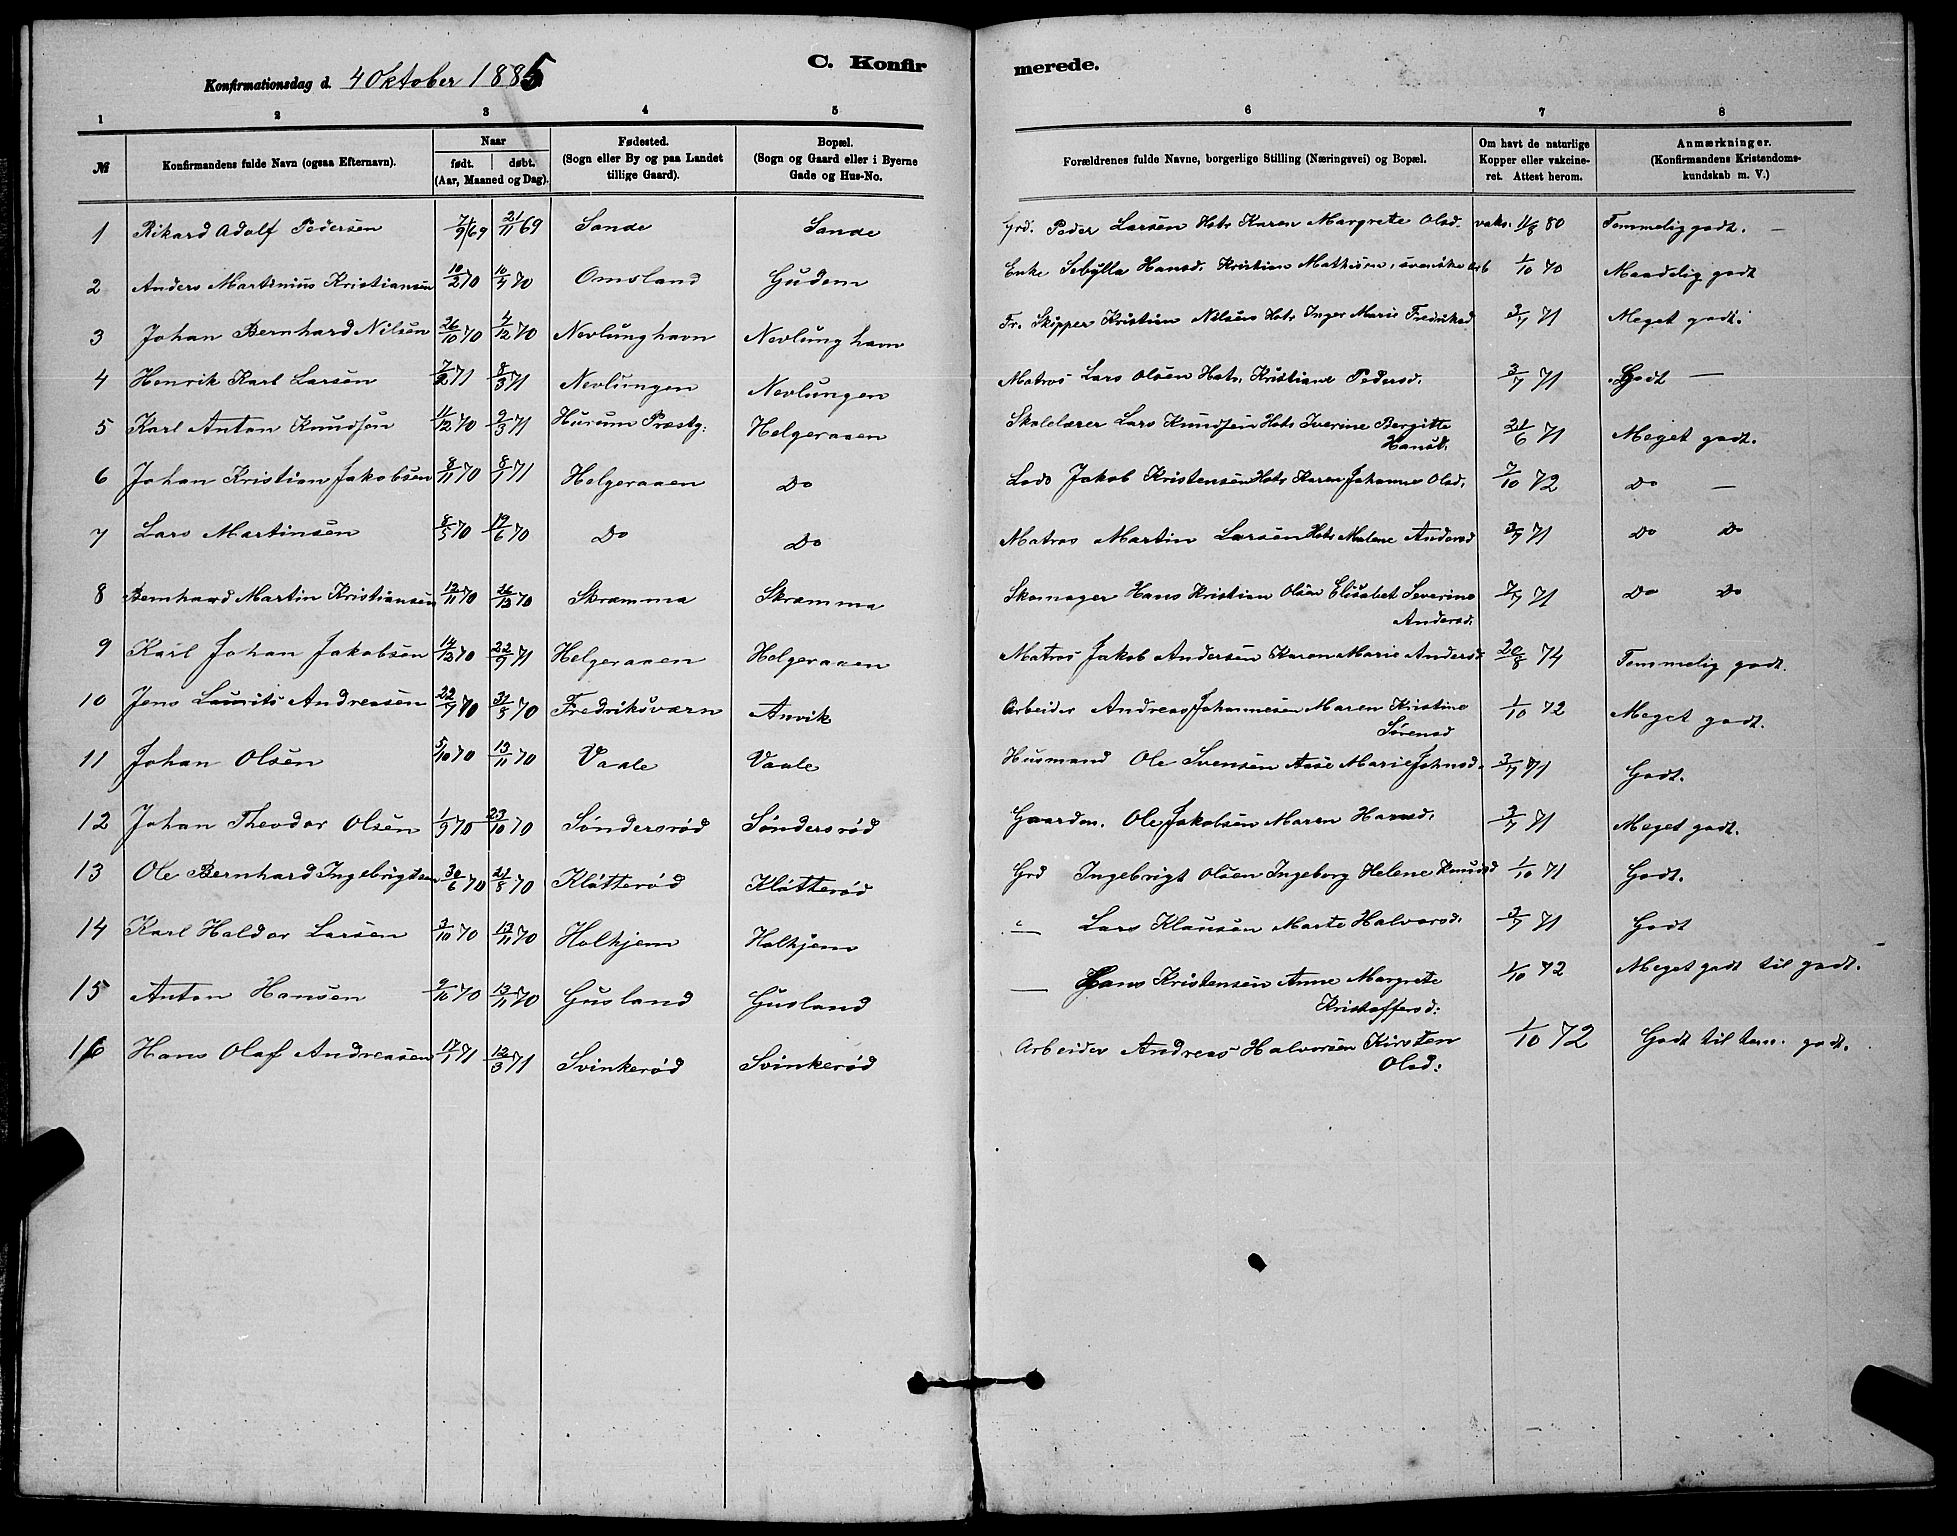 C. Konfirmerede.
Konfirmationsdag d. 4 Oktober 1885
1 2 3 4 5 6 7 8
№ Konfirmandens fulde Navn (ogsaa Efternavn). Naar født. døbt. (Aar, Maaned og Dag). Fødested. (Sogn eller By og paa Landet tillige Gaard). Bopæl. (Sogn og Gaard eller i Byerne Gade og Hus-No. Forældrenes fulde Navne, borgerlige Stilling (Næringsvei) og Bopæl. Om havt de naturlige Kopper eller vakcineret. Attest herom. Anmærkninger. (Konfirmandens Kristendomskundskab m. V.)
1 Rikard Adolf Pedersen 7/9 69 21/11 69 Sande Sande Grd. Peder Larsen Hots Karen Margrete Olsd. vaks. 11/8 80 Temmelig godt. —
2 Anders Martinius Kristiansen 10/2 70 10/4 70 Omsland Gudem Enke Sebylla Hansd. Kristian Mathisen, svenske 1/10 70 Maadelig godt
3 Johan Bernhard Nilsen 26/10 70 4/12 70 Nevlunghavn Nevlunghavn Fr. Skipper Kristian Nilsen Hots Inger Marie Fredriksd 3/7 71 Meget godt.
4 Henrik Karl Larsen 7/2 71 8/3 71 Nevlungen Nevlungen Matros Lars Olsen Hots. Kristiane Pedersd. 3/7 71 Godt —
5 Karl Anton Knudsen 11/12 70 9/3 71 Hurum Præstg: Helgeraaen Skolelærer Lars Knudsen Hots Iverine Bergitte Hansd. 21/6 71 Meget godt.
6 Johan Kristian Jakobsen 8/11 70 8/1 71 Helgeraaen Do Lods Jakob Kristensen Hots Karen Johanne Olsd. 7/10 72 Do —
7 Lars Martinsen 8/5 70 19/6 70 Do Do Matros Martin Larsen Hots Malene Andersd 3/7 71 Do Do
8 Bernhard Martin Kristiansen 12/11 70 26/12 70 Skramma Skramma Skomager Hans Kristian Olsen Elisabet Severine Andersd. 3/7 71 Do Do
9 Karl Johan Jakobsen 14/12 70 22/9 71 Helgeraaen Helgeraaen Matros Jakob Andersen Karen Marie Andersd 20/8 74 Temmelig godt.
10 Jens Laurits Andreasen 22/7 70 31/8 70 Fredriksværn Anvik Arbeider Andreas Johannesen Maren Kristine Sørensd 1/10 72 Meget godt.
11 Johan Olsen 5/10 70 13/11 70 Vaale Vaale Husmand Ole Svensen Aase Marie Johnsd. 3/7 71 Godt.
12 Johan Theodor Olsen 1/9 70 23/10 70 Søndersrød Søndersrød Gaardm. Ole Jakobsen Maren Hansd. 3/7 71 Meget godt.
13 Ole Bernhard Ingebrigtsen 30/6 70 21/8 70 Klåtterød Klåtterød Grd Ingebrigt Olsen Ingeborg Helene Knudsd 1/10 71 Godt.
14 Karl Haldor Larsen 3/10 70 13/11 70 Holhjem Holhjem " Lars Klausen Marte Halvorsd. 3/7 71 Godt
15 Anton Hansen 9/10 70 13/11 70 Gusland Gusland — Hans Kristensen Anne Margrete Kristoffersd: 1/10 72 Meget godt til godt.
16 Hans Olaf Andreasen 17/1 71 12/3 71 Svinkerød Svinkerød Arbeider Andreas Halvorsen Kirsten Olsd: 1/10 72 Godt til tem. godt.